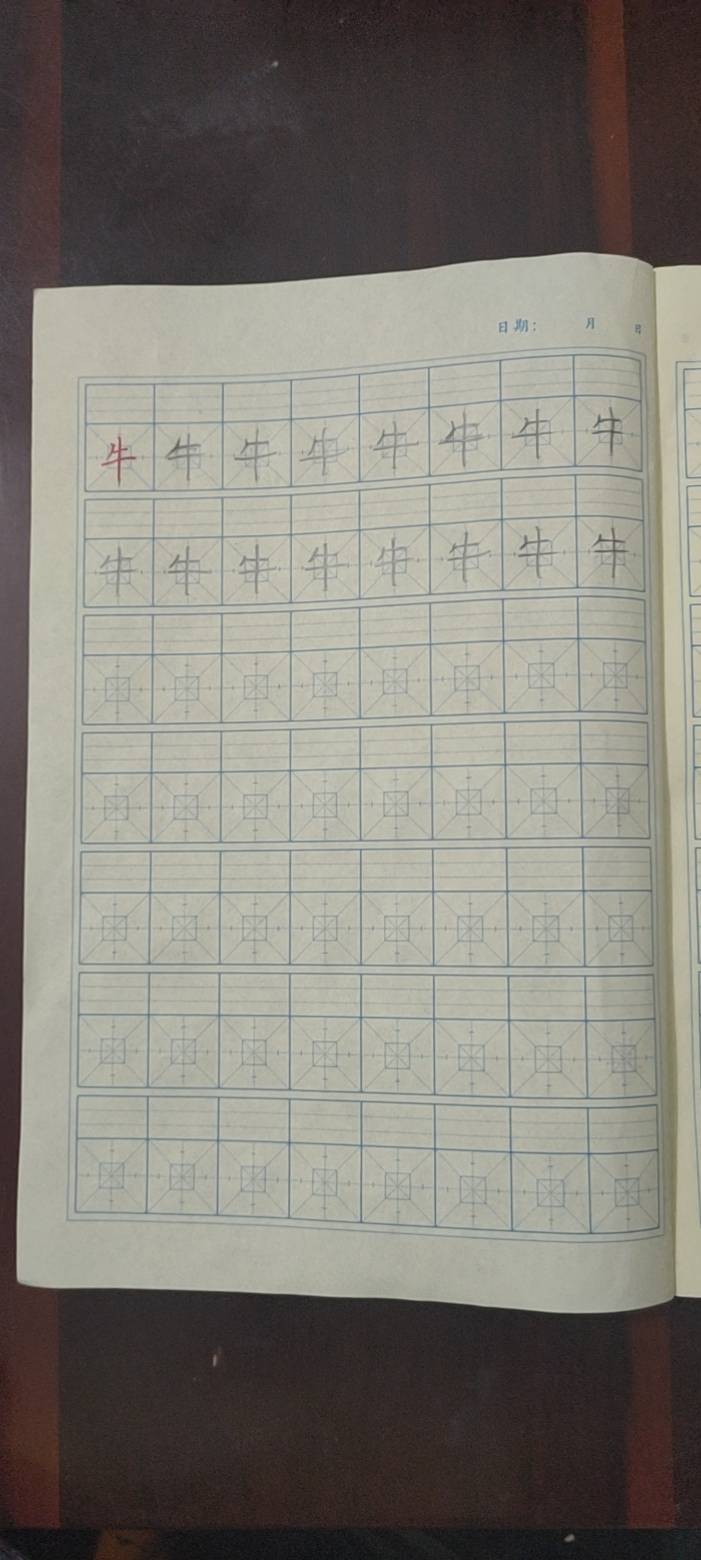 日期： 月 日
牛 牛 牛 牛 牛 牛 牛 牛
牛 牛 牛 牛 牛 牛 牛 牛